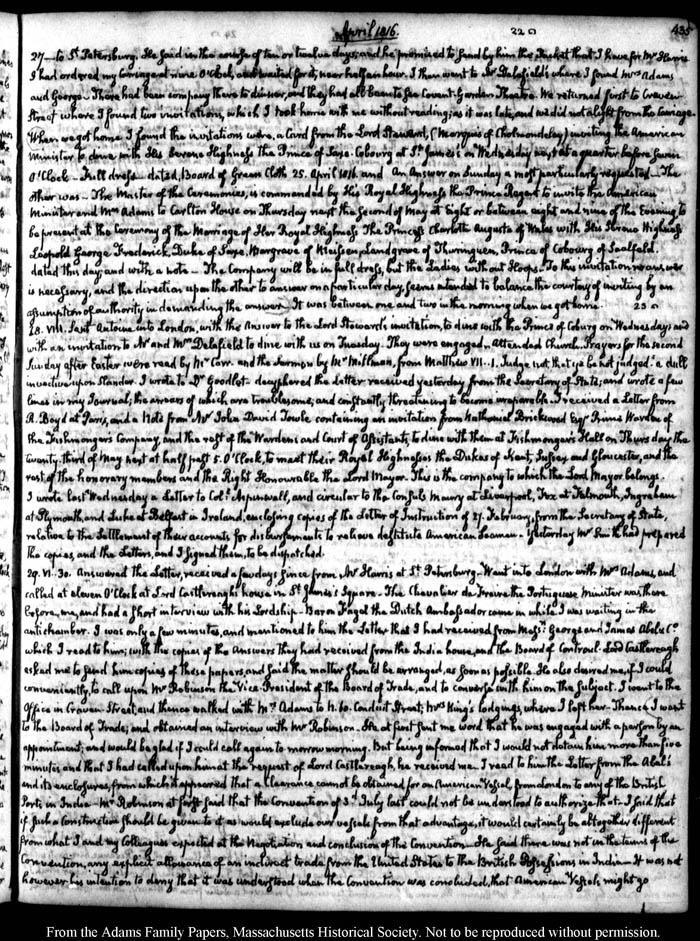 April 1816.
435
27.— to St Petersburg. He said in the course of ten or twelve days; and he promised to send by him the Packet that I have for Mr Harris
I had ordered my Carriage at nine O'Clock, and waited for it, near half an hour. I then went to Mr Delafield's where I found Mrs Adams
and George. There had been company there to dinner, and they had all been to the Covent-Garden Theatre. We returned first to Craven
Street where I found two invitations, which I took home with me without reading; as it was late, and we did not alight from the Carriage.
When we got home I found the invitations were, a Card from the Lord Steward, (Marquis of Cholmondeley) inviting the American
Minister to dine with His Serene Highness the Prince of Saxe-Cobourg at St James's on Wednesday next at a quarter before seven
O'Clock— Full dress— dated, Board of Green Cloth 25. April 1816. and An Answer on Sunday is most particularly requested— The
other was— The Master of the Ceremonies, is commanded by His Royal Highness the Prince Regent to invite the American
Minister and Mrs Adams to Carlton House on Thursday next the Second of May at Eight or between eight and nine of the Evening, to
be present at the Ceremony of the Marriage of Her Royal Highness The Princess Charlotte Augusta of Wales with His Serene Highness
Leopold George Frederick, Duke of Saxe, Margrave of Meissen, Landgrave of Thuringuen, Prince of Cobourg of Saalfeld.
dated this day; and with a note— The Company will be in full dress, but the Ladies without Hoops— To this invitation no answer
is necessary, and the direction upon the other to answer on a particular day, seems intended to balance the courtesy of inviting by an
assumption of authority in demanding the answer— It was between one and two in the morning when we got home.
28. VIII. Sent Antoine into London, with the Answer to the Lord Steward's invitation, to dine with the Prince of Coburg on Wednesday; and
with an invitation to Mr and Mrs Delafield to dine with us on Tuesday. They were engaged. Attended Church. Prayers for the second
Sunday after Easter were read by Mr Carr. and the Sermon by Mr Millman, from Matthew VII. 1. Judge not that ye be not judged: a dull
invective upon Slander. I wrote to Dr Goodlet— decyphered the Letter received yesterday from the Secretary of State; and wrote a few
lines in my Journal, the arrears of which are troublesome, and constantly threatening to become irreparable. I received a Letter from
R. Boyd at Paris, and a Note from Mr John David Towle containing an invitation from Nathaniel Brickwood Esqr Prime Warden of
the Fishmongers Company, and the rest of the Wardens and Court of Assistants, to dine with them at Fishmonger's Hall on Thursday the
twenty-third of May next at half past 5. O'Clock, to meet their Royal Highnesses the Dukes of Kent, Sussex and Gloucester, and the
rest of the honorary members and the Right Honourable the Lord Mayor. This is the company to which the Lord Mayor belongs.
I wrote last Wednesday a Letter to Coll. Aspinwall, and circular to the Consuls Maury at Liverpool, Fox at Falmouth, Ingraham
at Plymouth, and Luke at Belfast in Ireland, enclosing copies of the Letter of Instruction of 27. February, from the Secretary of State,
relative to the Settlement of their accounts for disbursements to relieve destitute American Seamen. Yesterday Mr Smith had prepared
the copies, and the Letters, and I signed them, to be dispatched.
29. VI.30. Answered the Letter, received a few days since from Mr Harris at St Petersburg. Went into London with Mrs Adams, and
called at eleven O'Clock at Lord Castlereagh's house in St James's Square. The Chevalier de Freire the Portuguese Minister was there
before me, and had a short interview with his Lordship— Baron Fagel the Dutch Ambassador came in while I was waiting in the
antichamber. I was only a few minutes, and mentioned to him the Letter that I had received from Messrs George and James Abel & Co
which I read to him; with the copies of the Answers they had received from the India house, and the Board of Controul. Lord Castlereagh
asked me to send him copies of these papers, and said the matter should be arranged, as soon as possible. He also desired me, if I could
conveniently, to call upon Mr Robinson the Vice-President of the Board of Trade, and to converse with him on the subject. I went to the
Office in Craven Street, and thence walked with Mrs Adams to N. 60. Conduit Street, Mrs King's lodgings, where I left her— Thence I went
to the Board of Trade, and obtained an interview with Mr Robinson. He at first sent me word that he was engaged with a person by an
appointment, and would be glad if I could call again to-morrow morning. But being informed that I would not detain him more than five
minutes and that I had called upon him at the request of Lord Castlereagh, he received me. I read to him the Letter from the Abel's
and its enclosures, from which it appeared that a Clearance cannot be obtained for an American Vessel, from London to any of the British
Ports in India— Mr Robinson at first said that the Convention of 3d July last could not be understood to authorize that. I said that
if such a Construction should be given to it as would exclude our vessels from that advantage, it would certainly be altogether different
from what I and my Colleagues expected at the Negotiation and conclusion of the Convention— He said there was not in the terms of the
Convention, any explicit allowance of an indirect trade from the United States to the British Possessions in India— It was not
however his intention to deny that it was understood when the Convention was concluded, that American Vessels might go
From the Adams Family Papers, Massachusetts Historical Society. Not to be reproduced without permission.